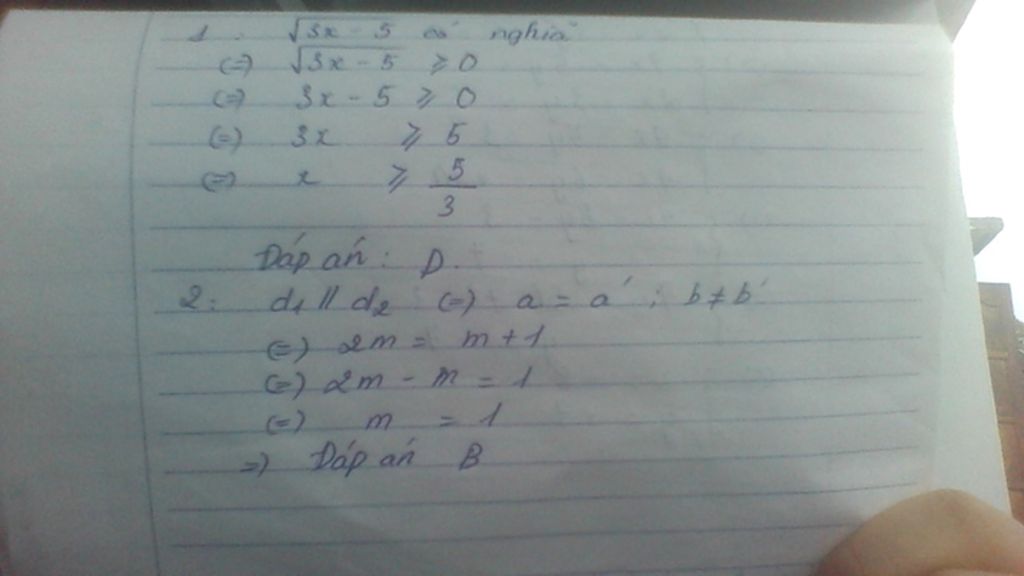 1. √3x - 5 có nghĩa
(=) √3x - 5 ⩾ 0
(=) 3x - 5 ⩾ 0
(=) 3x ⩾ 5
(=) x ⩾ 5/3
Đáp án: D.
2. d1 // d2 (=) a = a' ; b ≠ b'
(=) 2m = m + 1
(=) 2m - m = 1
(=) m = 1
=) Đáp án B